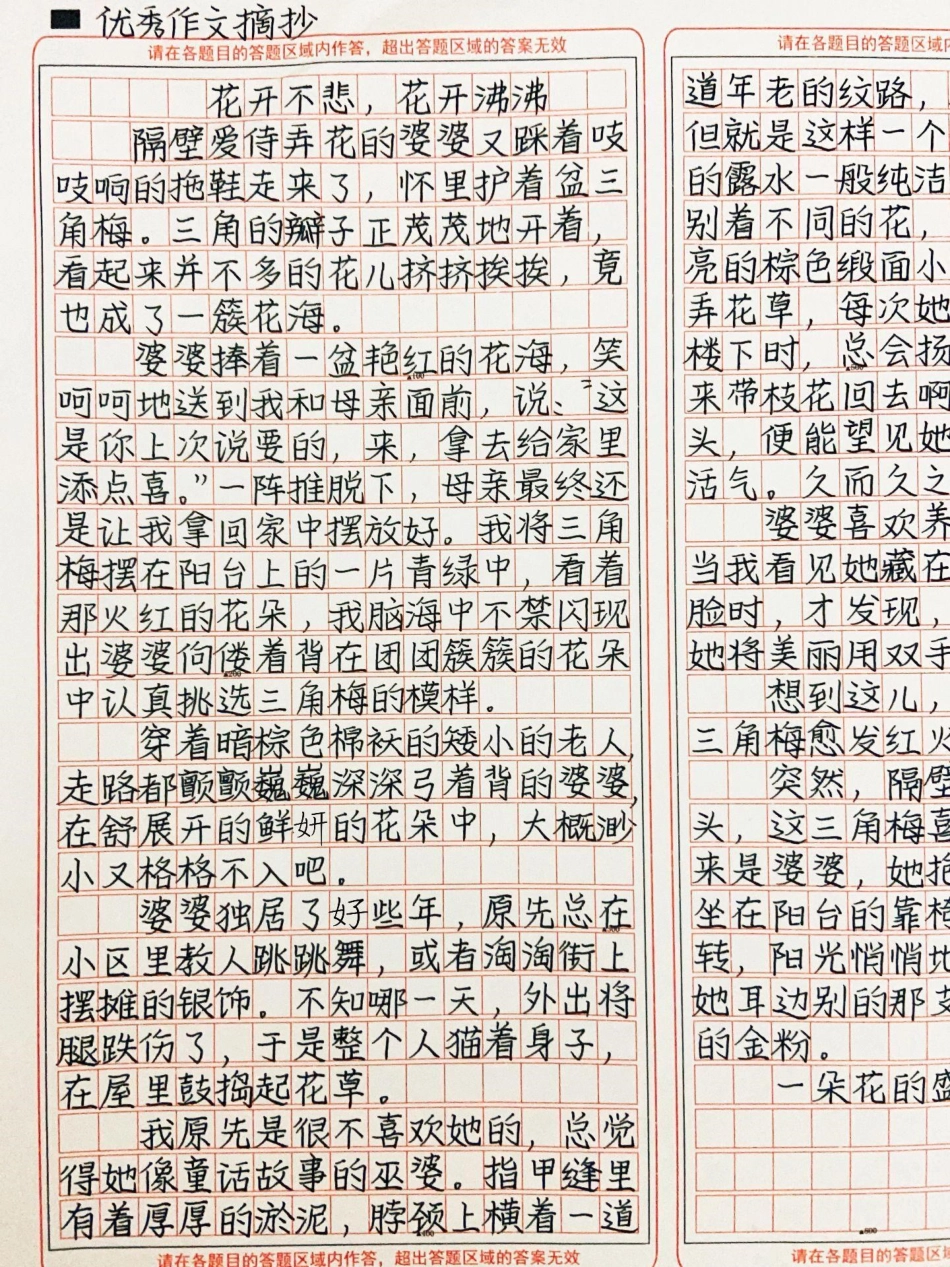 优秀作文摘抄
请在各题目的答题区域内作答，超出答题区域的答案无效
花开不悲，花开沸沸
隔壁爱侍弄花的婆婆又踩着吱
吱响的拖鞋走来了，怀里护着盆三
角梅。三角的瓣子正茂茂地开着，
看起来并不多的花儿挤挤挨挨，竟
也成了一簇花海。
婆婆捧着一盆艳红的花海，笑
呵呵地送到我和母亲面前，说：“这
是你上次说要的，来，拿去给家里
添点喜。”一阵推脱下，母亲最终还
是让我拿回家中摆放好。我将三角
梅摆在阳台上的一片青绿中，看着
那火红的花朵，我脑海中不禁闪现
出婆婆佝偻着背在团团簇簇的花朵
中认真挑选三角梅的模样。
穿着暗棕色棉袄的矮小的老人，
走路都颤颤巍巍深深弓着背的婆婆，
在舒展开的鲜妍的花朵中，大概渺
小又格格不入吧。
婆婆独居了好些年，原先总在
小区里教人跳跳舞，或者淘淘街上
摆摊的银饰。不知哪一天，外出将
腿跌伤了，于是整个人猫着身子，
在屋里鼓捣起花草。
我原先是很不喜欢她的，总觉
得她像童话故事的巫婆。指甲缝里
有着厚厚的淤泥，脖颈上横着一道
请在各题目的答题区域内作答，超出答题区域的答案无效
请在各题目的答题区域内
道年老的纹路，
但就是这样一个
的露水一般纯洁
别着不同的花，
亮的棕色缎面小
弄花草，每次她
楼下时，总会扬
来带枝花回去啊
头，便能望见她
活气。久而久之
婆婆喜欢养
当我看见她藏在
脸时，才发现，
她将美丽用双手
想到这儿，
三角梅愈发红火
突然，隔壁
头，这三角梅喜
来是婆婆，她抱
坐在阳台的靠椅
转，阳光悄悄地
她耳边别的那支
的金粉。
一朵花的盛
请在各题目的答题区域内